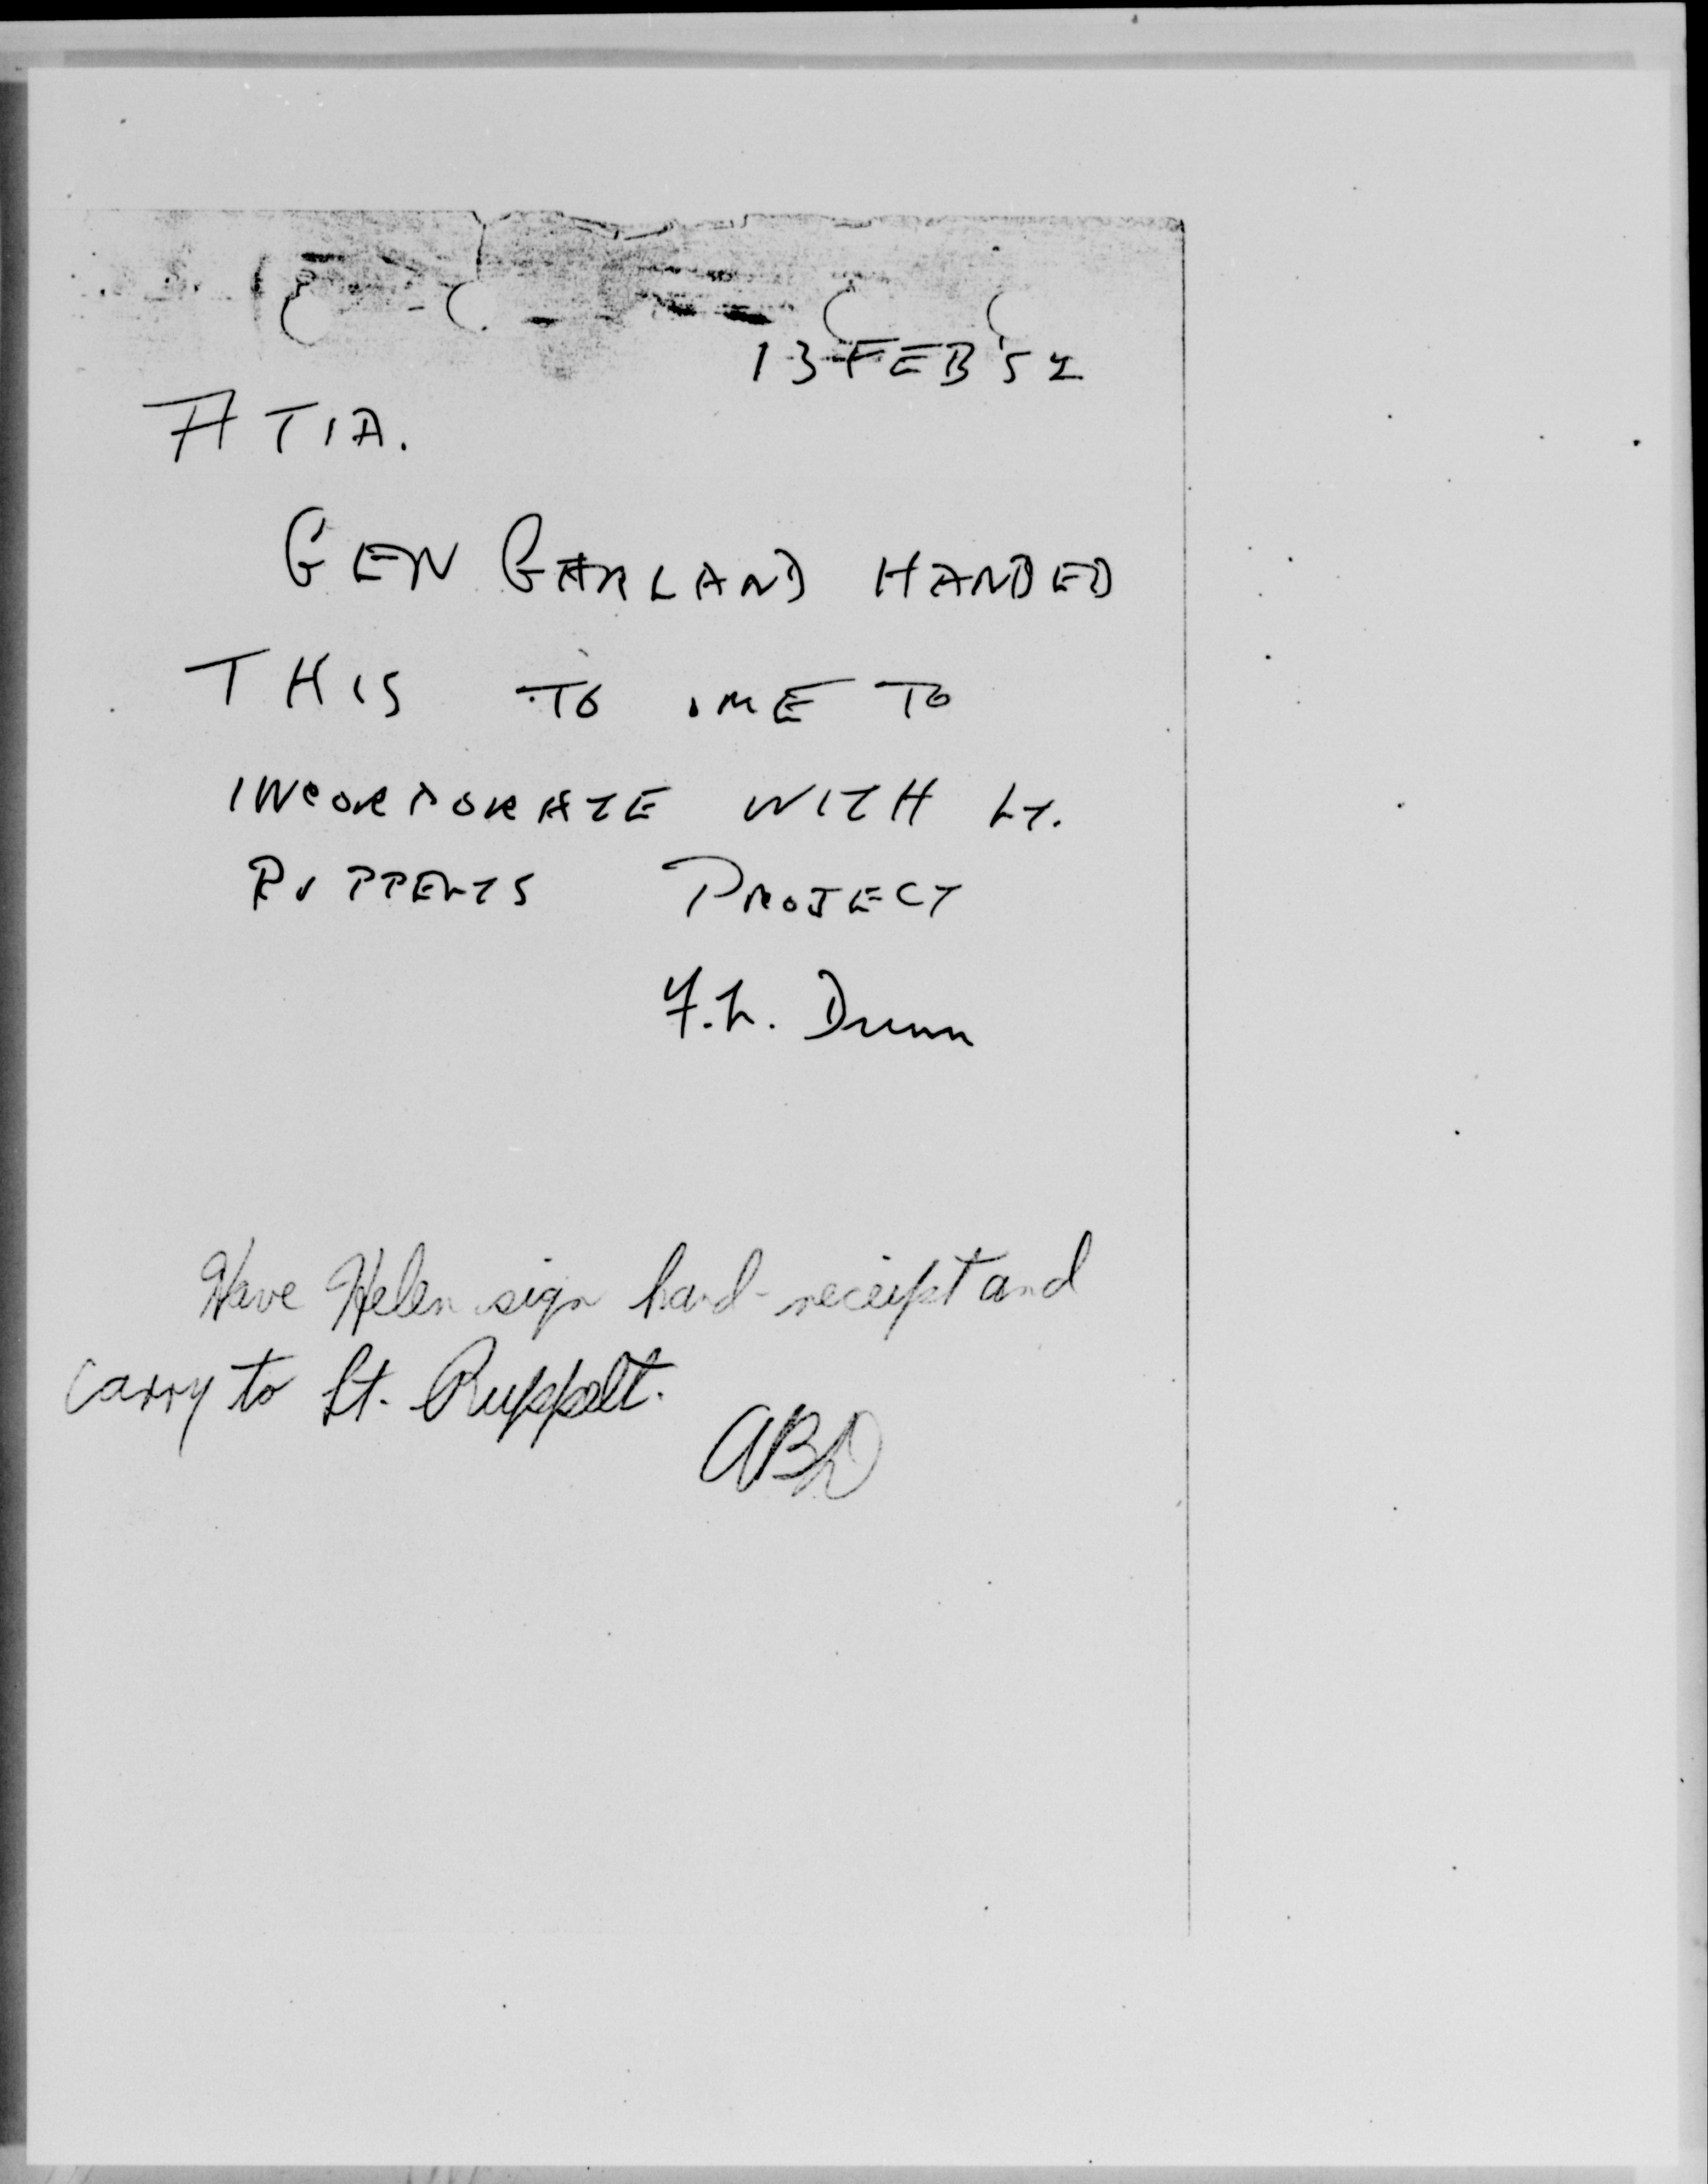 13 FEB '52
ATIA.
GEN GARLAND HANDED
THIS TO ME TO
INCORPORATE WITH LT.
RUPPELTS PROJECT
F.L. Dunn
Have Helen sign hand-receipt and
carry to Lt. Ruppelt.
ABD